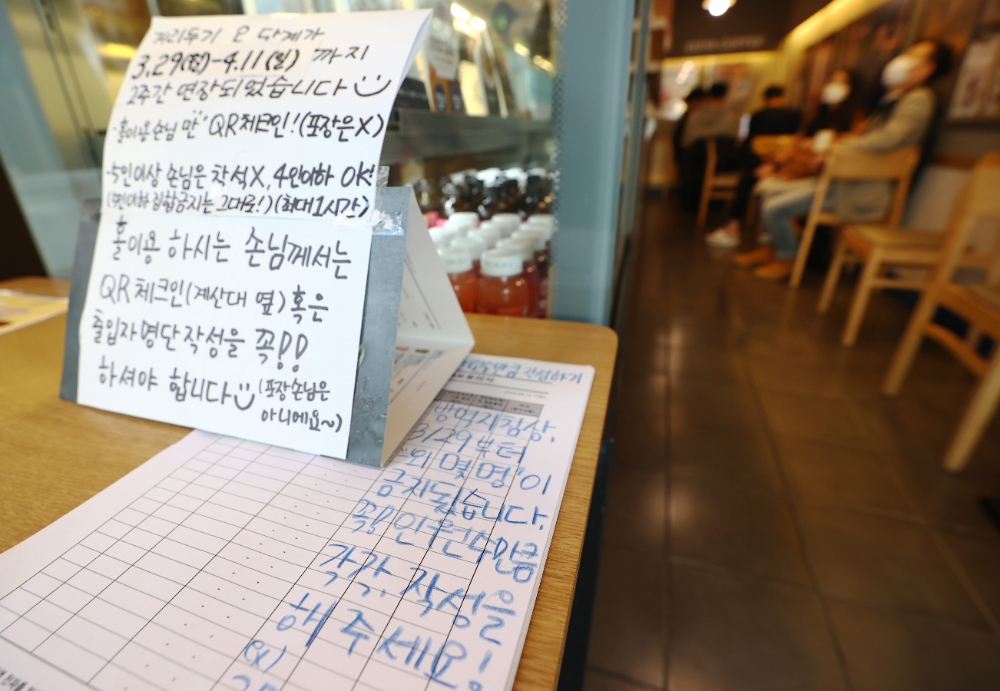 거리두기 2 단계가
3.29(월)-4.11(일) 까지
2주간 연장되었습니다
-홀이용 손님 만" QR체크인!(포장은X)
-5인이상 손님은 착석X, 4인이하 OK!
집합금지는 그대로!)(최대1시간)
홀이용 하시는 손님께서는
QR체크인(계산대 옆) 혹은
출입자명단작성을 꼭!!
하셔야 합니다 (포장손님은
아니에요~)
작성하기
방역지침상,
3/29부터
"외 몇 명"이
금지됐습니다.
꼭! 인원수만큼
각각, 작성을
해 주세요!
ex)